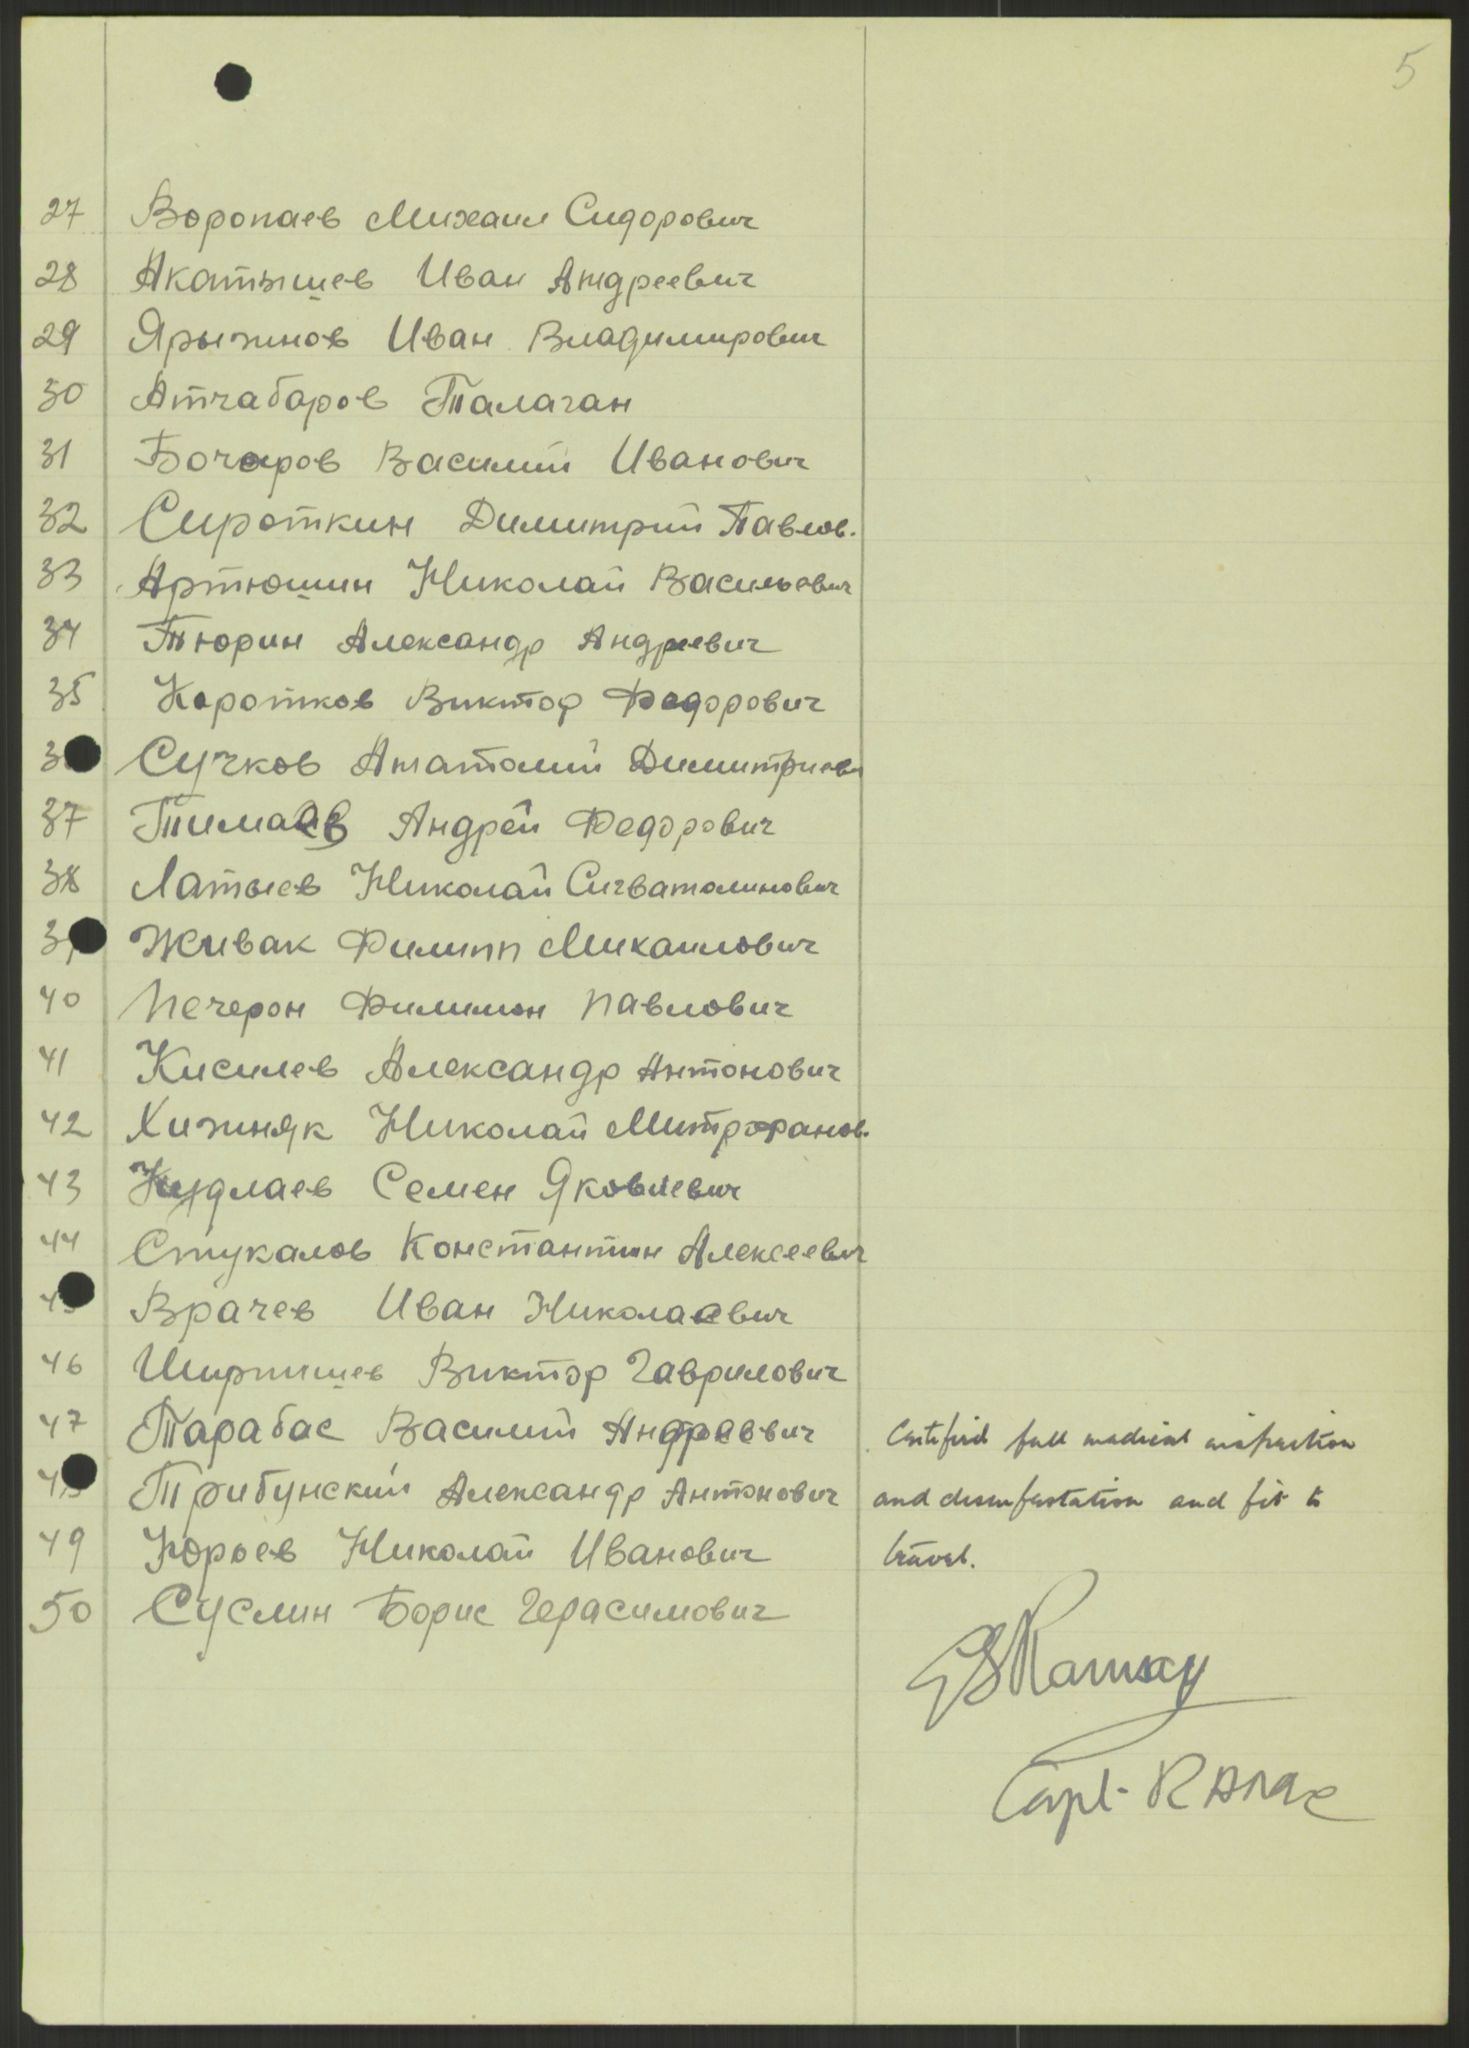 5
27 Воропаев Михаил Сидорович
28 Акатышев Иван Андреевич
29 Ярыжнов Иван Владимирович
30 Атчабаров Талаган
31 Бочаров Василий Иванович
32 Сироткин Димитрий Павлов.
33 Артюшин Николай Васильевич
34 Тюрин Александр Андреевич
35 Коротков Виктор Федорович
3 Сучков Анатолий Димитриеви
37 Тимаев Андрей Федорович
38 Латыев Николай Сигватолинович
3 Живак Филипп Михаилович
40 Печерон Филимон Павлович
41 Кисилев Александр Антонович
42 Хижняк Николай Митрофанов.
43 Кудлаев Семен Яковлевич
44 Стукалов Константин Алексеевич
4 Врачев Иван Николаевич
46 Ширтишев Виктор Гаврилович
47 Тарабас Василий Андреевич Certified full medical inspection
4 Трибунский Александр Антонович and disinfestation and fit to
49 Юрьев Николай Иванович travel.
50 Суслин Борис Герасимович
Ramsay
Capt. RAMC